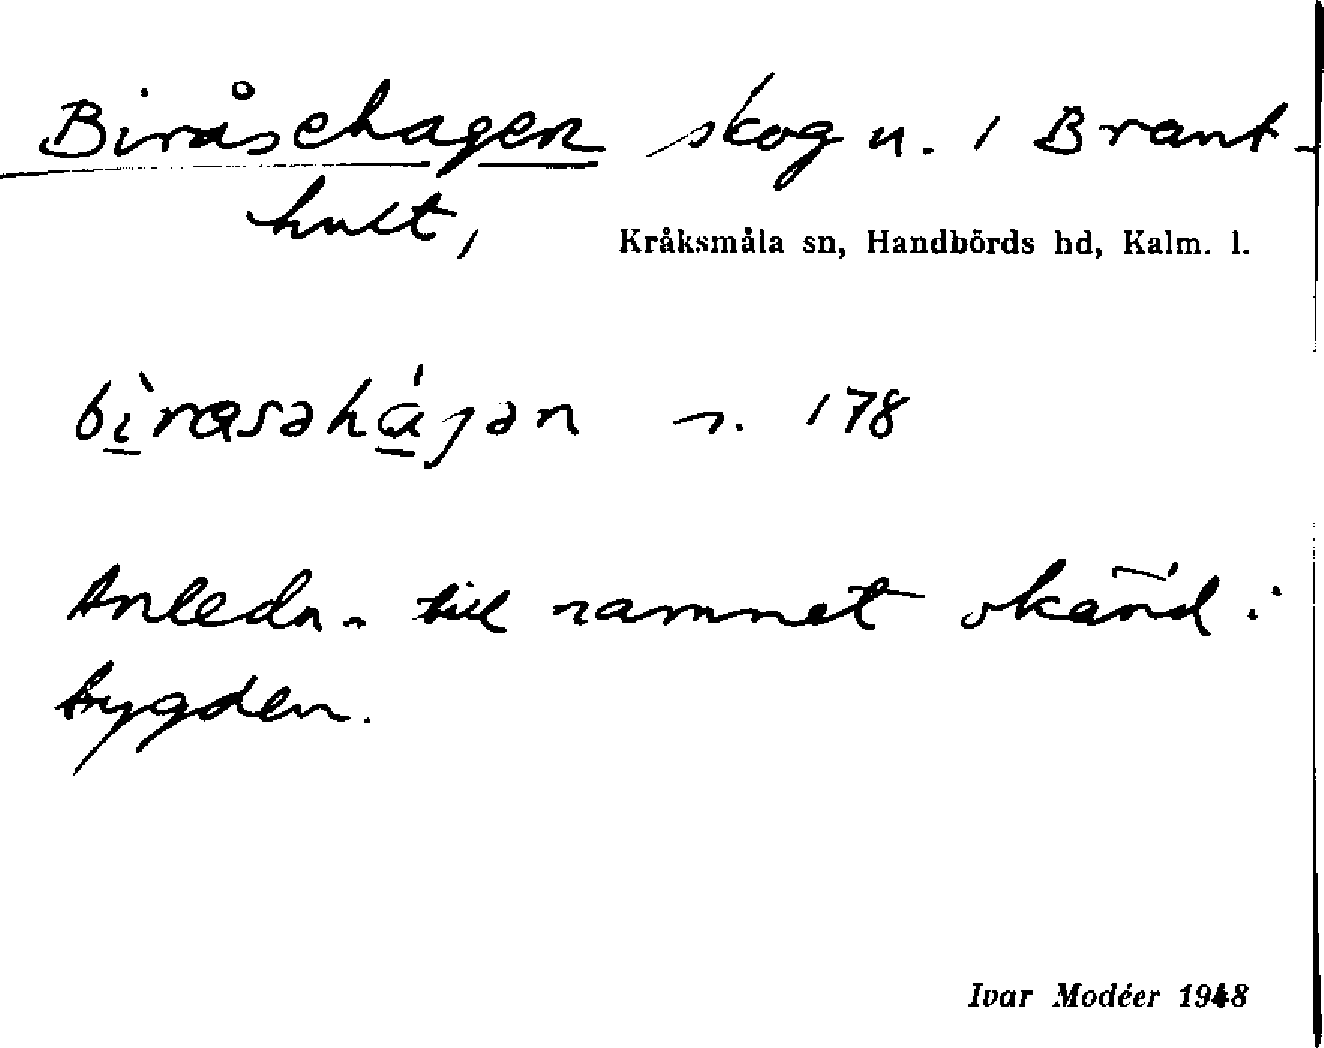 Biråsehagen skog n. 1 Brant-
hult,
Kråksmåla sn, Handbörds hd, Kalm. l.
bìrasəhájən s. 178
Anledn. till namnet okänd i
bygden.
Ivar Modéer 1948